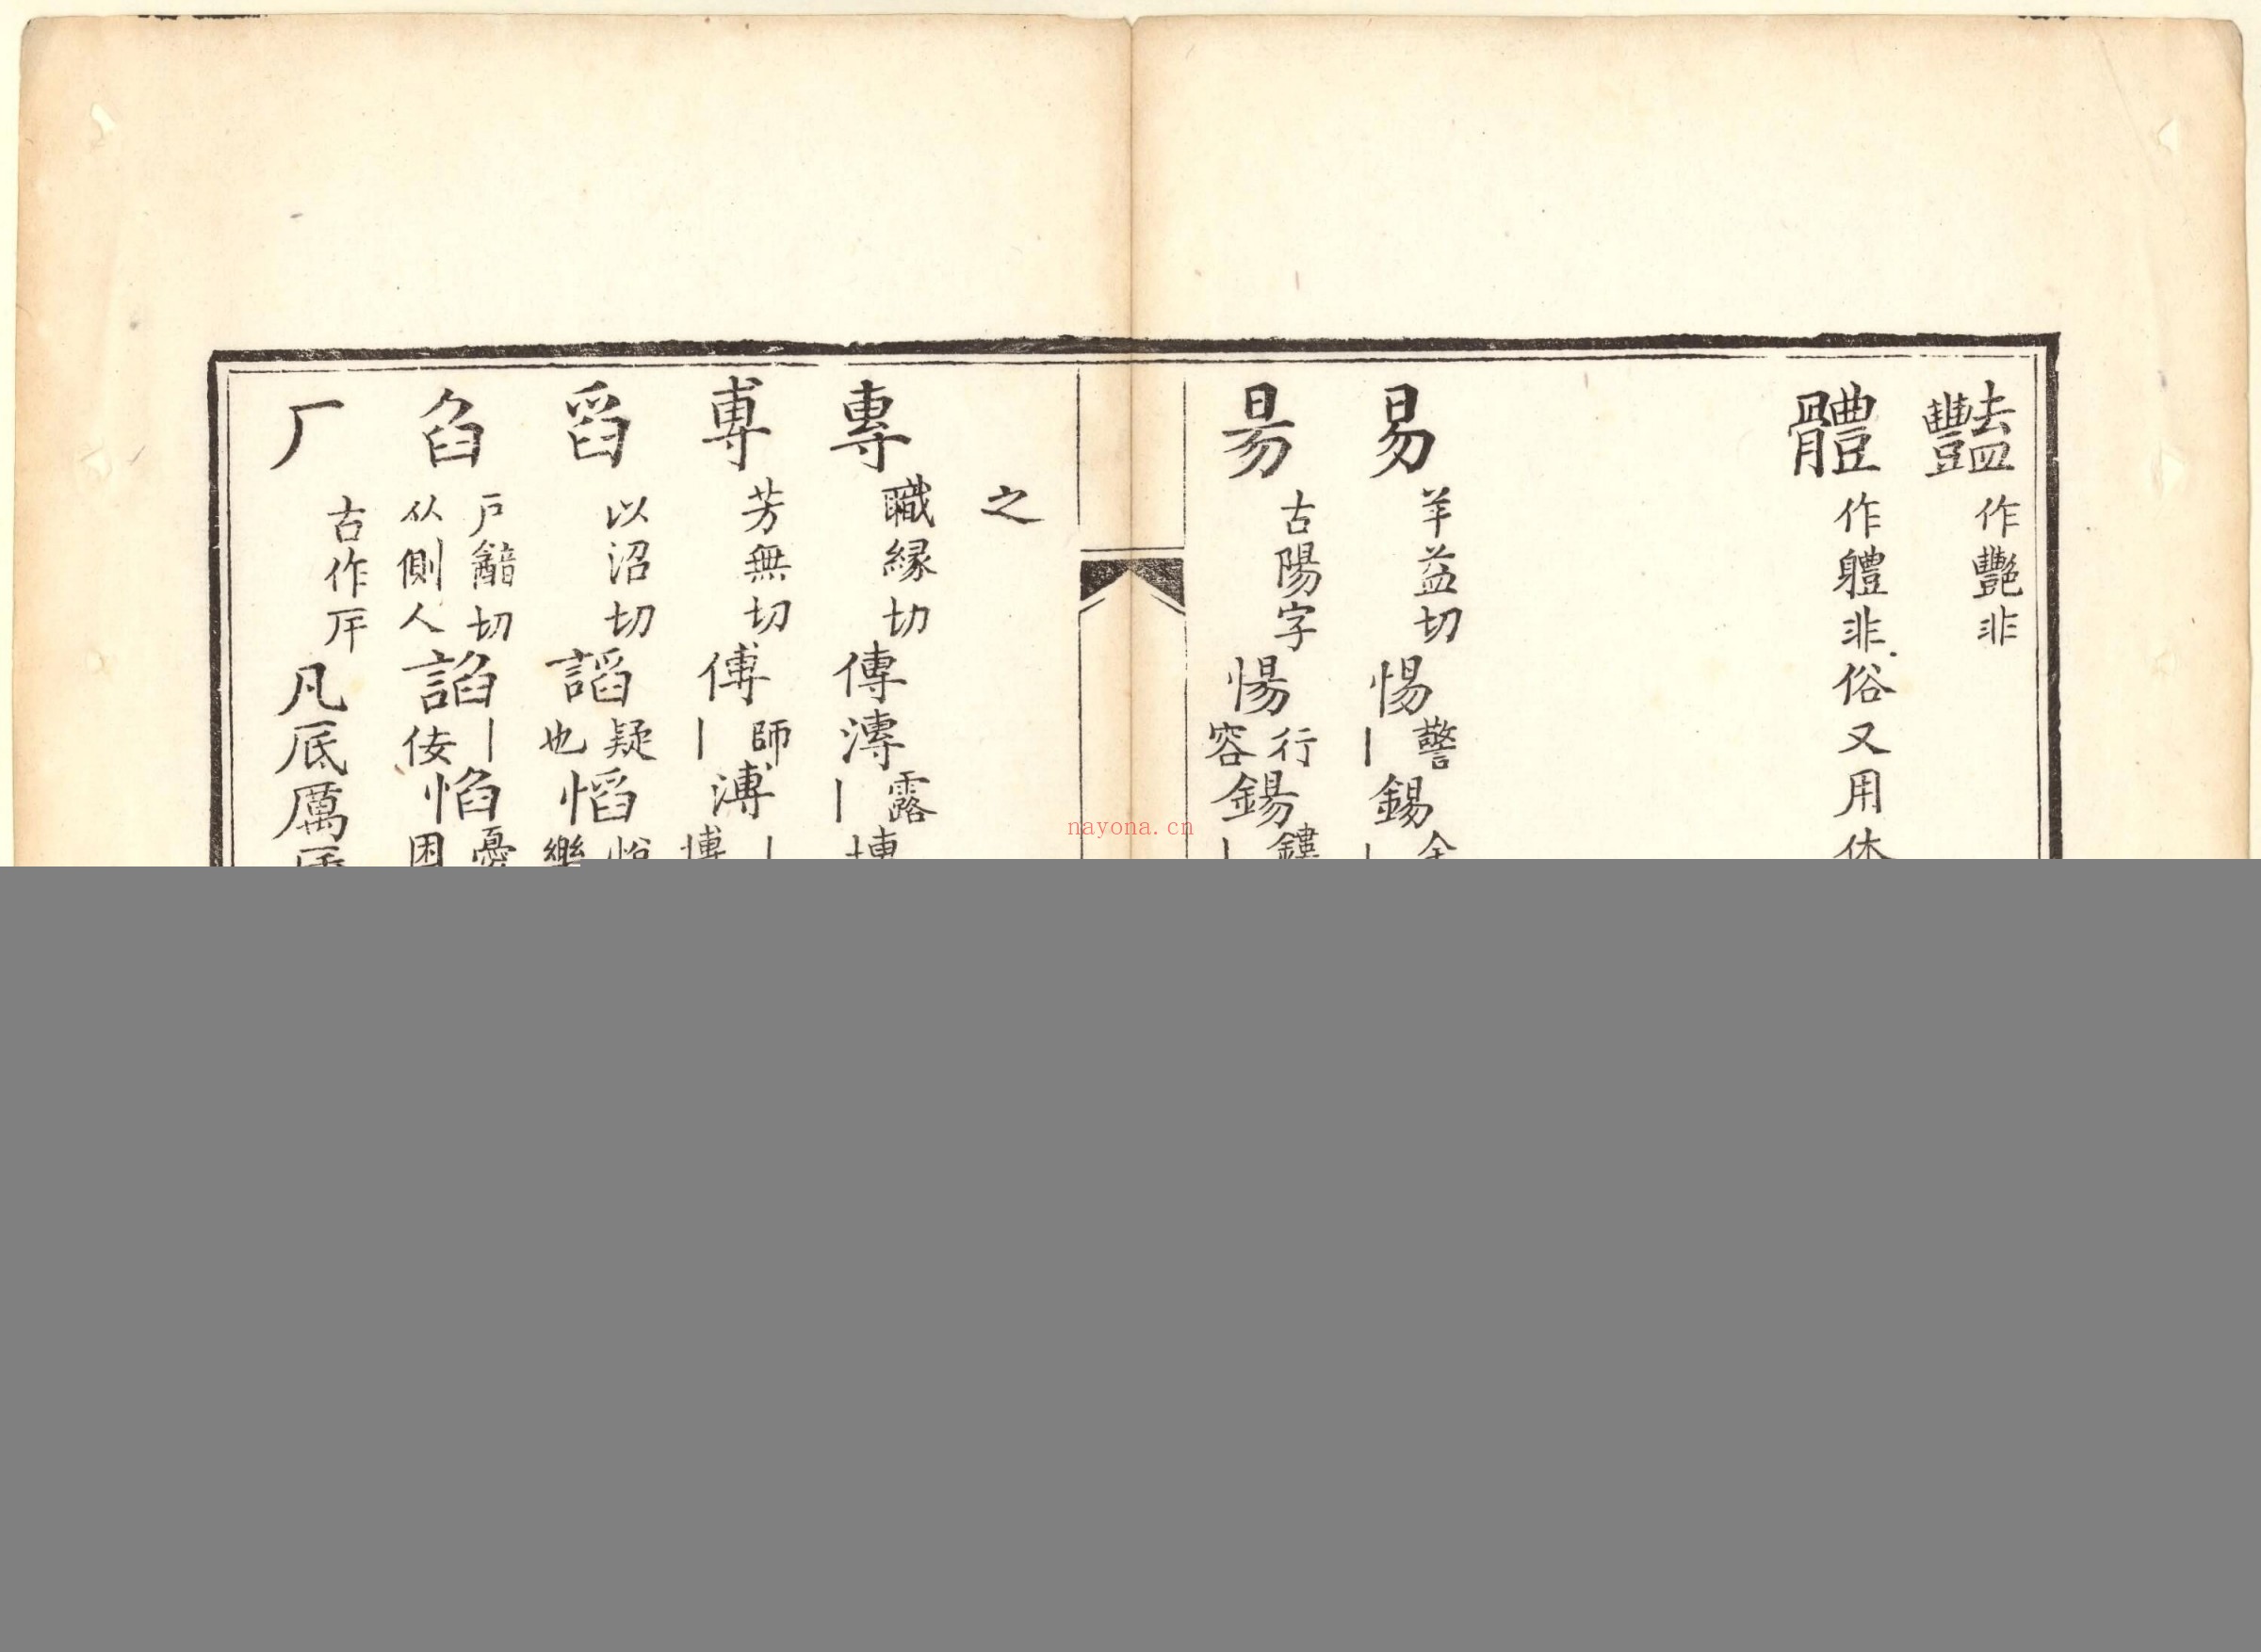 豔作艷非
體作軆非俗又用体
易羊益切惕警丨錫金丨
昜古陽字愓行容鍚鏤丨
之
專職緣切傳漙露丨
尃芳無切傅師丨溥丨
舀以沼切謟疑也慆
臽戶韽切从側人諂丨佞惂憂困
厂古作厈凡底厲
nayona.cn